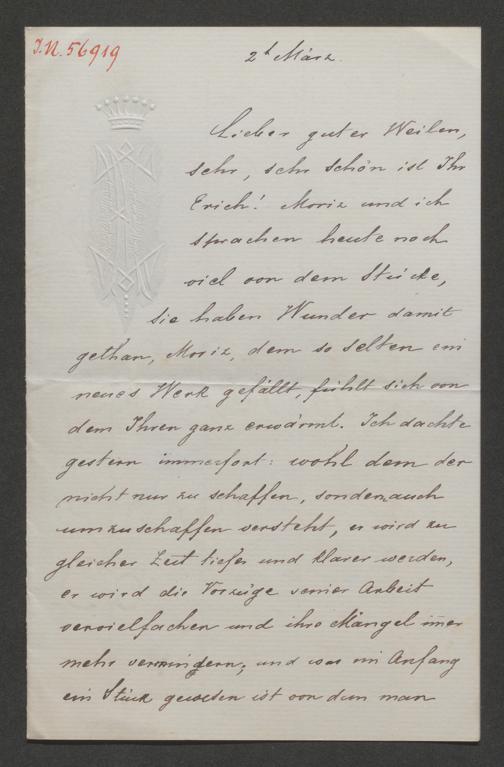 I.N. 56919
2t März.
Lieber guter Weilen,
sehr, sehr schön ist Ihr
Erich! Moriz und ich
sprachen heute noch
viel von dem Stücke,
sie haben Wunder damit
gethan, Moriz, dem so selten ein
neues Werk gefällt, fühlt sich von
dem Ihren ganz erwärmt. Ich dachte
gestern immerfort: wohl dem der
nicht nur zu schaffen, sondern auch
umzuschaffen versteht, er wird zu
gleicher Zeit tiefer und klarer werden,
er wird die Vorzüge seiner Arbeit
vervielfachen und ihre Mängel im̅er
mehr verringern; und was im Anfang
ein Stück gewesen ist von dem man